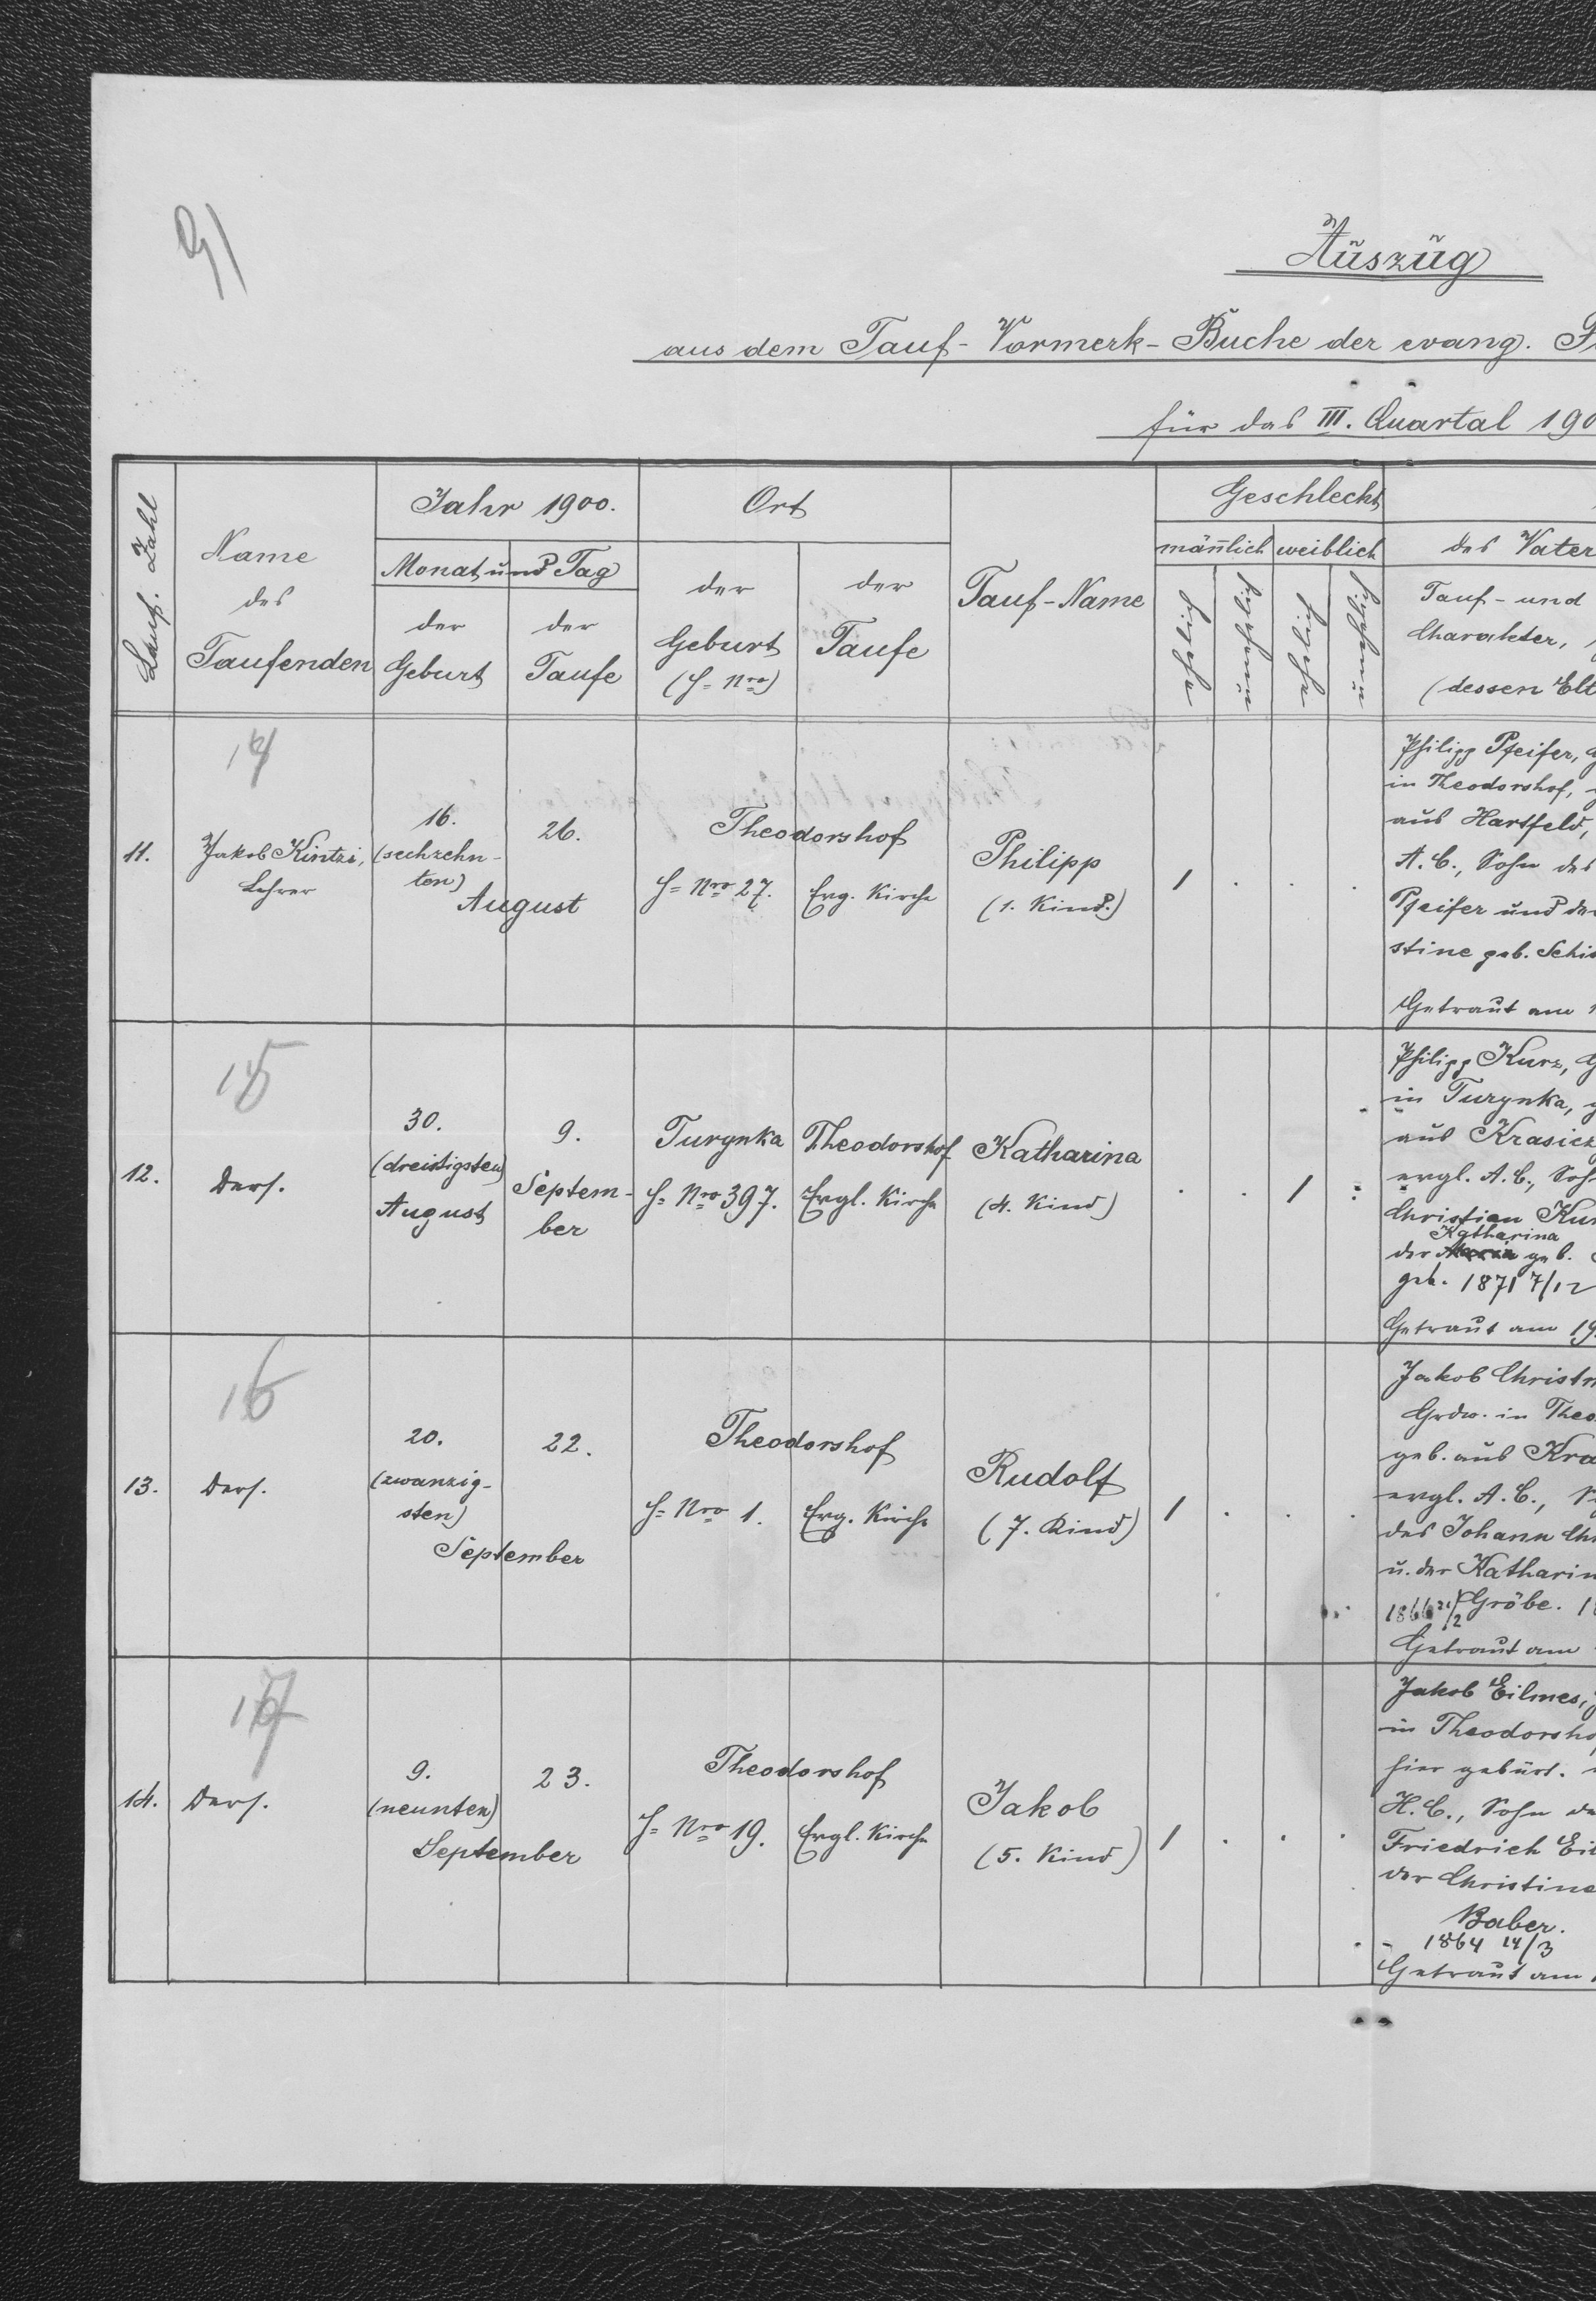 91
Auszug
aus dem Tauf-Vormerk-Buche der evang.
für das III. Quartal 190
Lauf. Zahl
Name
des
Taufenden
Jahr 1900.
Monat und Tag
der
Geburt
der
Taufe
Ort
der
Geburt
(H= Nro)
der
Taufe
Tauf-Name
Geschlecht
männlich weiblich
ehelich
unehelich
ehelich
unehelich
des Vater
Tauf- und
Charakter,
(dessen Elt
14
11.
Jakob Kintzi,
Lehrer
16.
(sechzehn-
ten)
26.
August
Theodorshof
H= Nro 27.
Evg. Kirche
Philipp
(1. Kind.)
1 . . .
Philipp Pfeifer, G
in Theodorshof,
aus Hartfeld,
A. C., Sohn des
Pfeifer und der
stine geb. Schi
Getraut am
15
12.
Ders.
30.
(dreißigsten)
August
9.
Septem-
ber
Turynka
H= Nro 397.
Theodorshof
Evgl. Kirche
Katharina
(4. Kind)
. . 1 .
Philipp Kurz, G
in Turynka, g
aus Krasicz
evgl. A. C., Soh
Christian Kur
Katharina
der Maria geb.
geb. 1871 7/12
Getraut am 19
16
13.
Ders.
20.
(zwanzig-
sten)
22.
September
Theodorshof
H= Nro 1.
Evg. Kirche
Rudolf
(7. Kind)
1 . . .
Jakob Christm
Grdw. in Theo
geb. aus Kra
evgl. A. C., S
des Johann Chr
u. der Katharin
1866 21/2 Gröbe. 1
Getraut am
17
14.
Ders.
9.
(neunten)
23.
September
Theodorshof
H= Nro 19.
Evgl. Kirche
Jakob
(5. Kind)
1 . . .
Jakob Eilmes, G
in Theodorsho
hier gebürt.
H. C., Sohn de
Friedrich Eil
der Christine
Baber.
1864 14/3
Getraut am